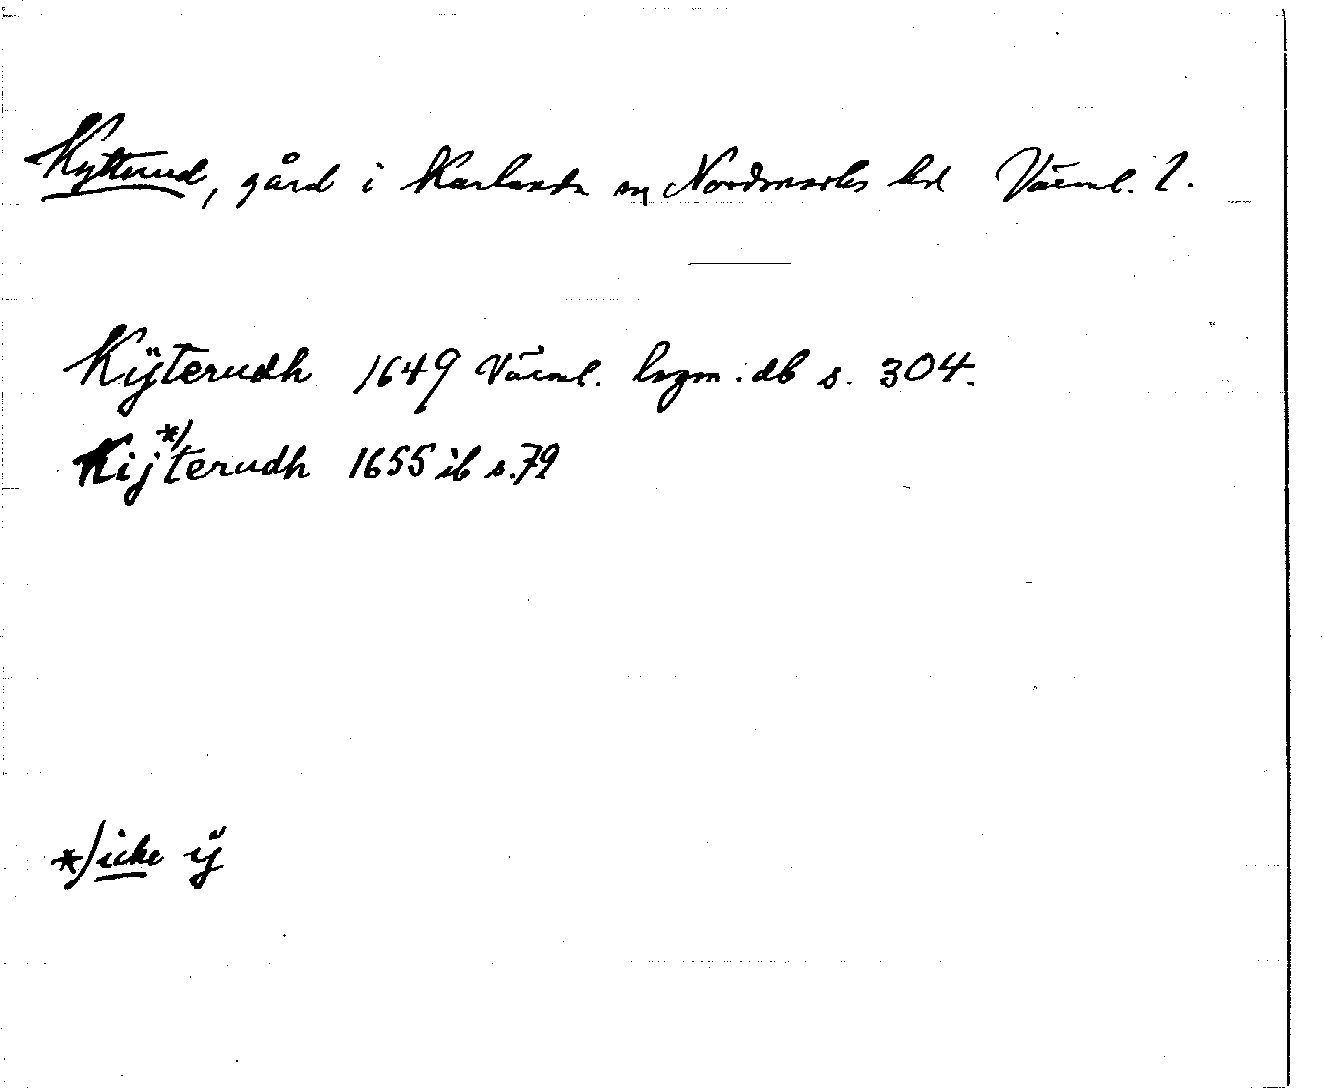 Kytterud, gård i Karlanda sn, Nordmarks hd Värml. l.
Kÿterudh 1649 Värml. hrgm. db s. 304.
Kij*)terudh 1655 ib s. 79
*) icke ÿ